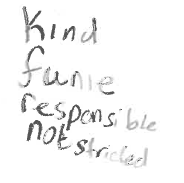 Kind
funie
responsible
not stricted